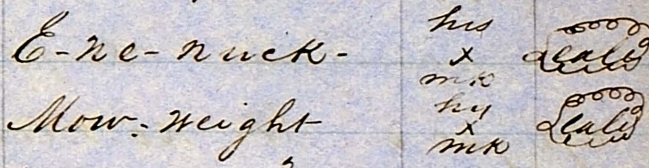 E-ne-nuck- his x mk Seal
Mow-weight his x mk Seal